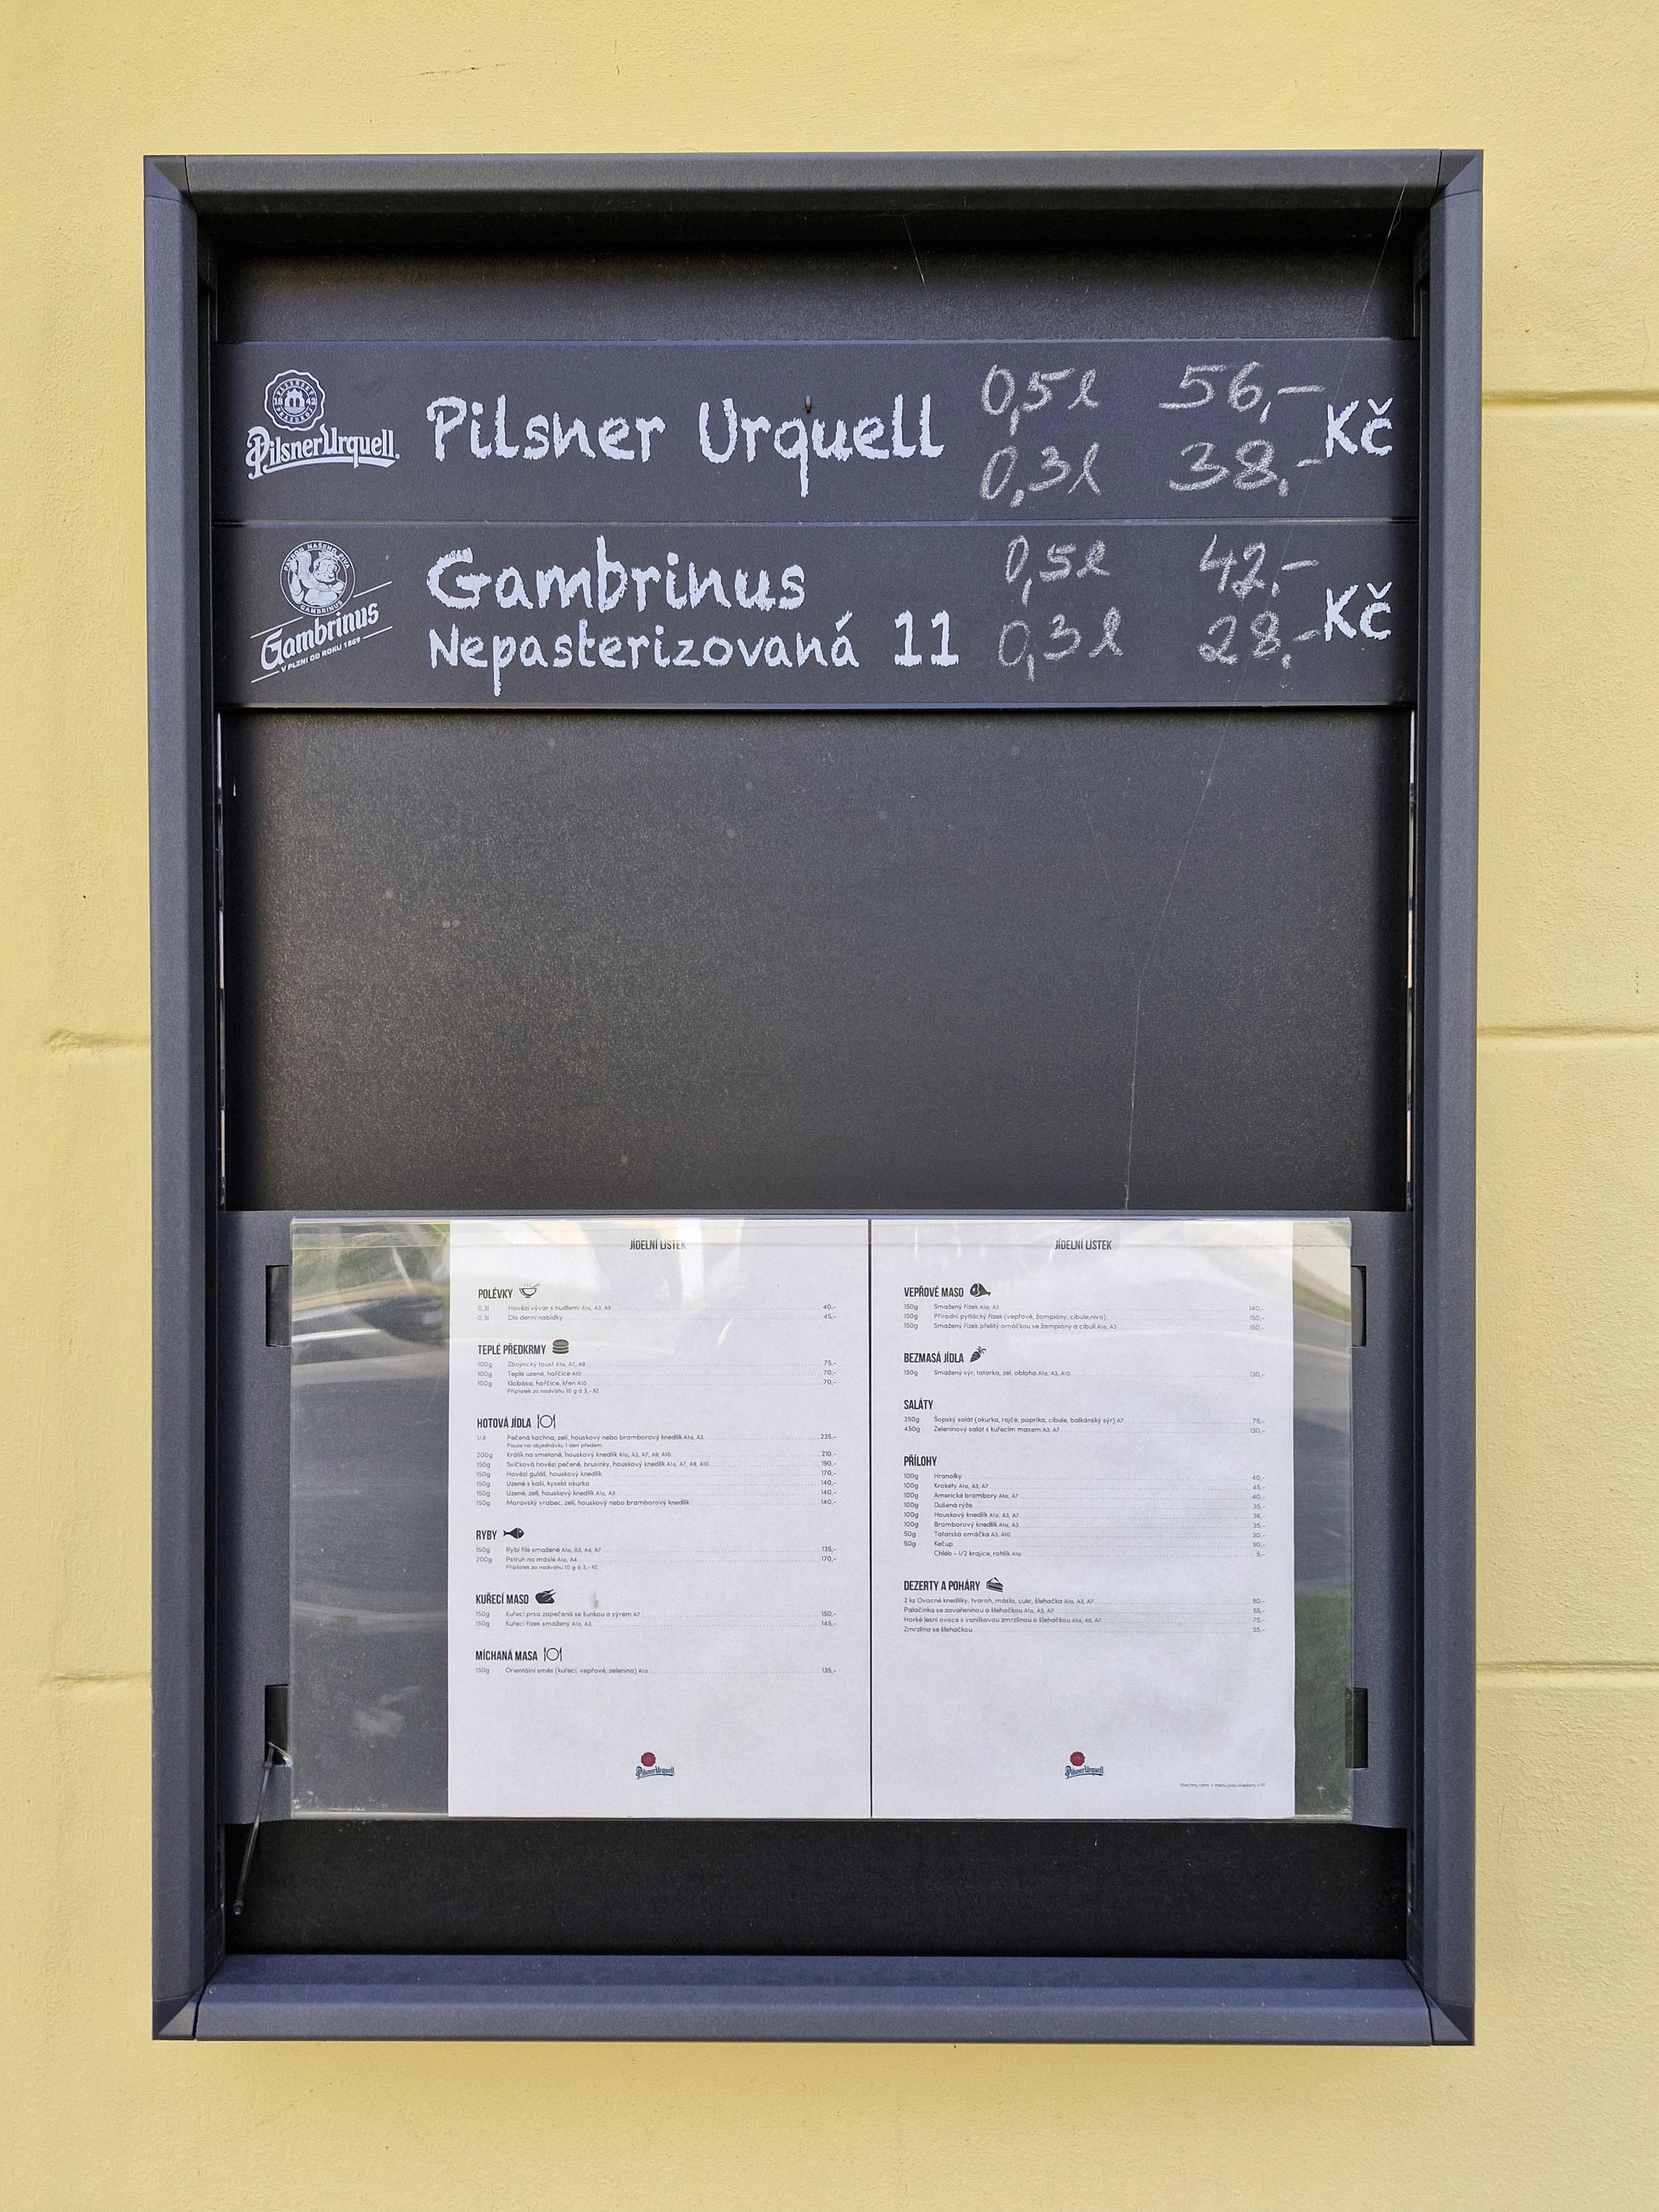 PLZEŇSKÝ PRAZDROJ
1842
Pilsner Urquell
Pilsner Urquell
0,5l 56,-
0,3l 38,-
Kč
PATRON NAŠEHO PIVA
GAMBRINUS
Gambrinus
V PLZNI OD ROKU 1869
Gambrinus
Nepasterizovaná 11
0,5l 42,-
0,3l 28,-
Kč
JÍDELNÍ LÍSTEK
POLÉVKY
0,3l Hovězí vývar s nudlemi A1a, A3, A9 40,-
0,3l Dle denní nabídky 45,-
TEPLÉ PŘEDKRMY
100g Zbojnický toust A1a, A7, A9 75,-
100g Teplé uzené, hořčice A10 70,-
100g Klobása, hořčice, křen A10 70,-
Příplatek za nadváhu 10 g á 3,- Kč
HOTOVÁ JÍDLA
1/4 Pečená kachna, zelí, houskový nebo bramborový knedlík A1a, A3 235,-
Pouze na objednávku 1 den předem
200g Králík na smetaně, houskový knedlík A1a, A3, A7, A9, A10 210,-
150g Svíčková hovězí pečeně, brusinky, houskový knedlík A1a, A7, A9, A10 190,-
150g Hovězí guláš, houskový knedlík 170,-
150g Uzené s kaší, kyselá okurka 140,-
150g Uzené, zelí, houskový knedlík A1a, A3 140,-
150g Moravský vrabec, zelí, houskový nebo bramborový knedlík 140,-
RYBY
150g Rybí filé smažené A1a, A3, A4, A7 135,-
200g Pstruh na másle A1a, A4 170,-
Příplatek za nadváhu 10 g á 3,- Kč
KUŘECÍ MASO
150g Kuřecí prsa zapečená se šunkou a sýrem A7 150,-
150g Kuřecí řízek smažený A1a, A3 145,-
MÍCHANÁ MASA
150g Orientální směs (kuřecí, vepřové, zelenina) A1a 135,-
Pilsner Urquell
JÍDELNÍ LÍSTEK
VEPŘOVÉ MASO
150g Smažený řízek A1a, A3 140,-
150g Přírodní pytlácký řízek (vepřové, žampiony, cibule, niva) 150,-
150g Smažený řízek přelitý omáčkou se žampiony a cibulí A1a, A3 150,-
BEZMASÁ JÍDLA
150g Smažený sýr, tatarka, zel. obloha A1a, A3, A10 130,-
SALÁTY
350g Šopský salát (okurka, rajče, paprika, cibule, balkánský sýr) A7 75,-
450g Zeleninový salát s kuřecím masem A3, A7 130,-
PŘÍLOHY
100g Hranolky 40,-
100g Krokety A1a, A3, A7 45,-
100g Americké brambory A1a, A7 40,-
100g Dušená rýže 35,-
100g Houskový knedlík A1a, A3, A7 36,-
100g Bramborový knedlík A1a, A3 35,-
50g Tatarská omáčka A3, A10 30,-
50g Kečup 30,-
Chléb – 1/2 krajíce, rohlík A1a 5,-
DEZERTY A POHÁRY
2 ks Ovocné knedlíky, tvaroh, máslo, cukr, šlehačka A1a, A3, A7 80,-
Palačinka se zavařeninou a šlehačkou A1a, A3, A7 55,-
Horké lesní ovoce s vanilkovou zmrzlinou a šlehačkou A1a, A6, A7 75,-
Zmrzlina se šlehačkou 55,-
Pilsner Urquell
Všechny ceny v menu jsou uvedeny v Kč